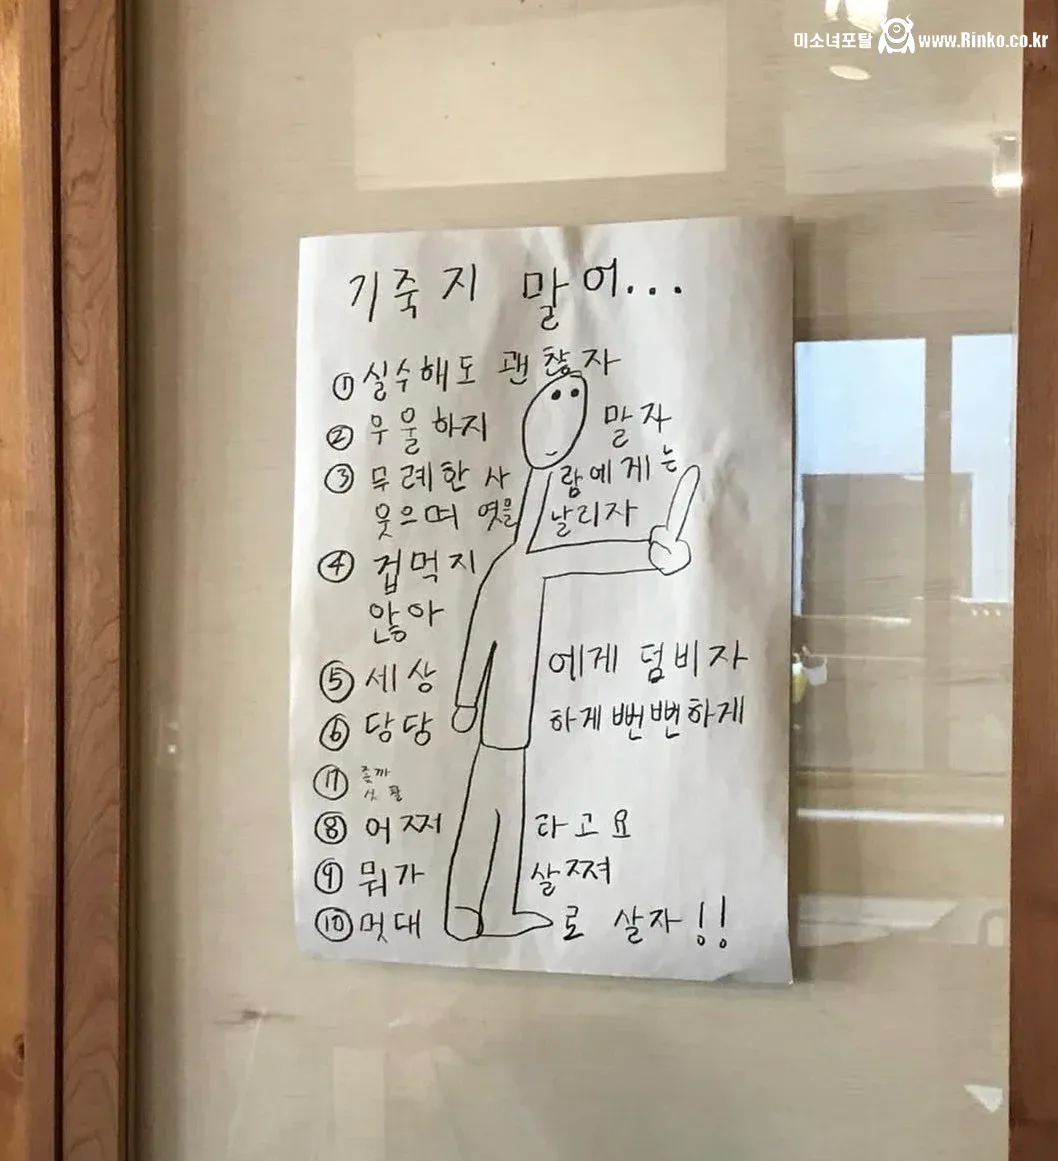 미소녀포탈 www.Rinko.co.kr
기죽지 말어...
① 실수해도 괜찮자
② 우울하지 말자
③ 무례한 사람에게는
웃으며 엿을 날리자
④ 겁먹지
않아
⑤ 세상에게 덤비자
⑥ 당당하게 뻔뻔하게
⑰ 좆까
싯팔
⑧ 어쩌타고요
⑨ 뭐가 살쪄
⑩ 멋대로 살자!!